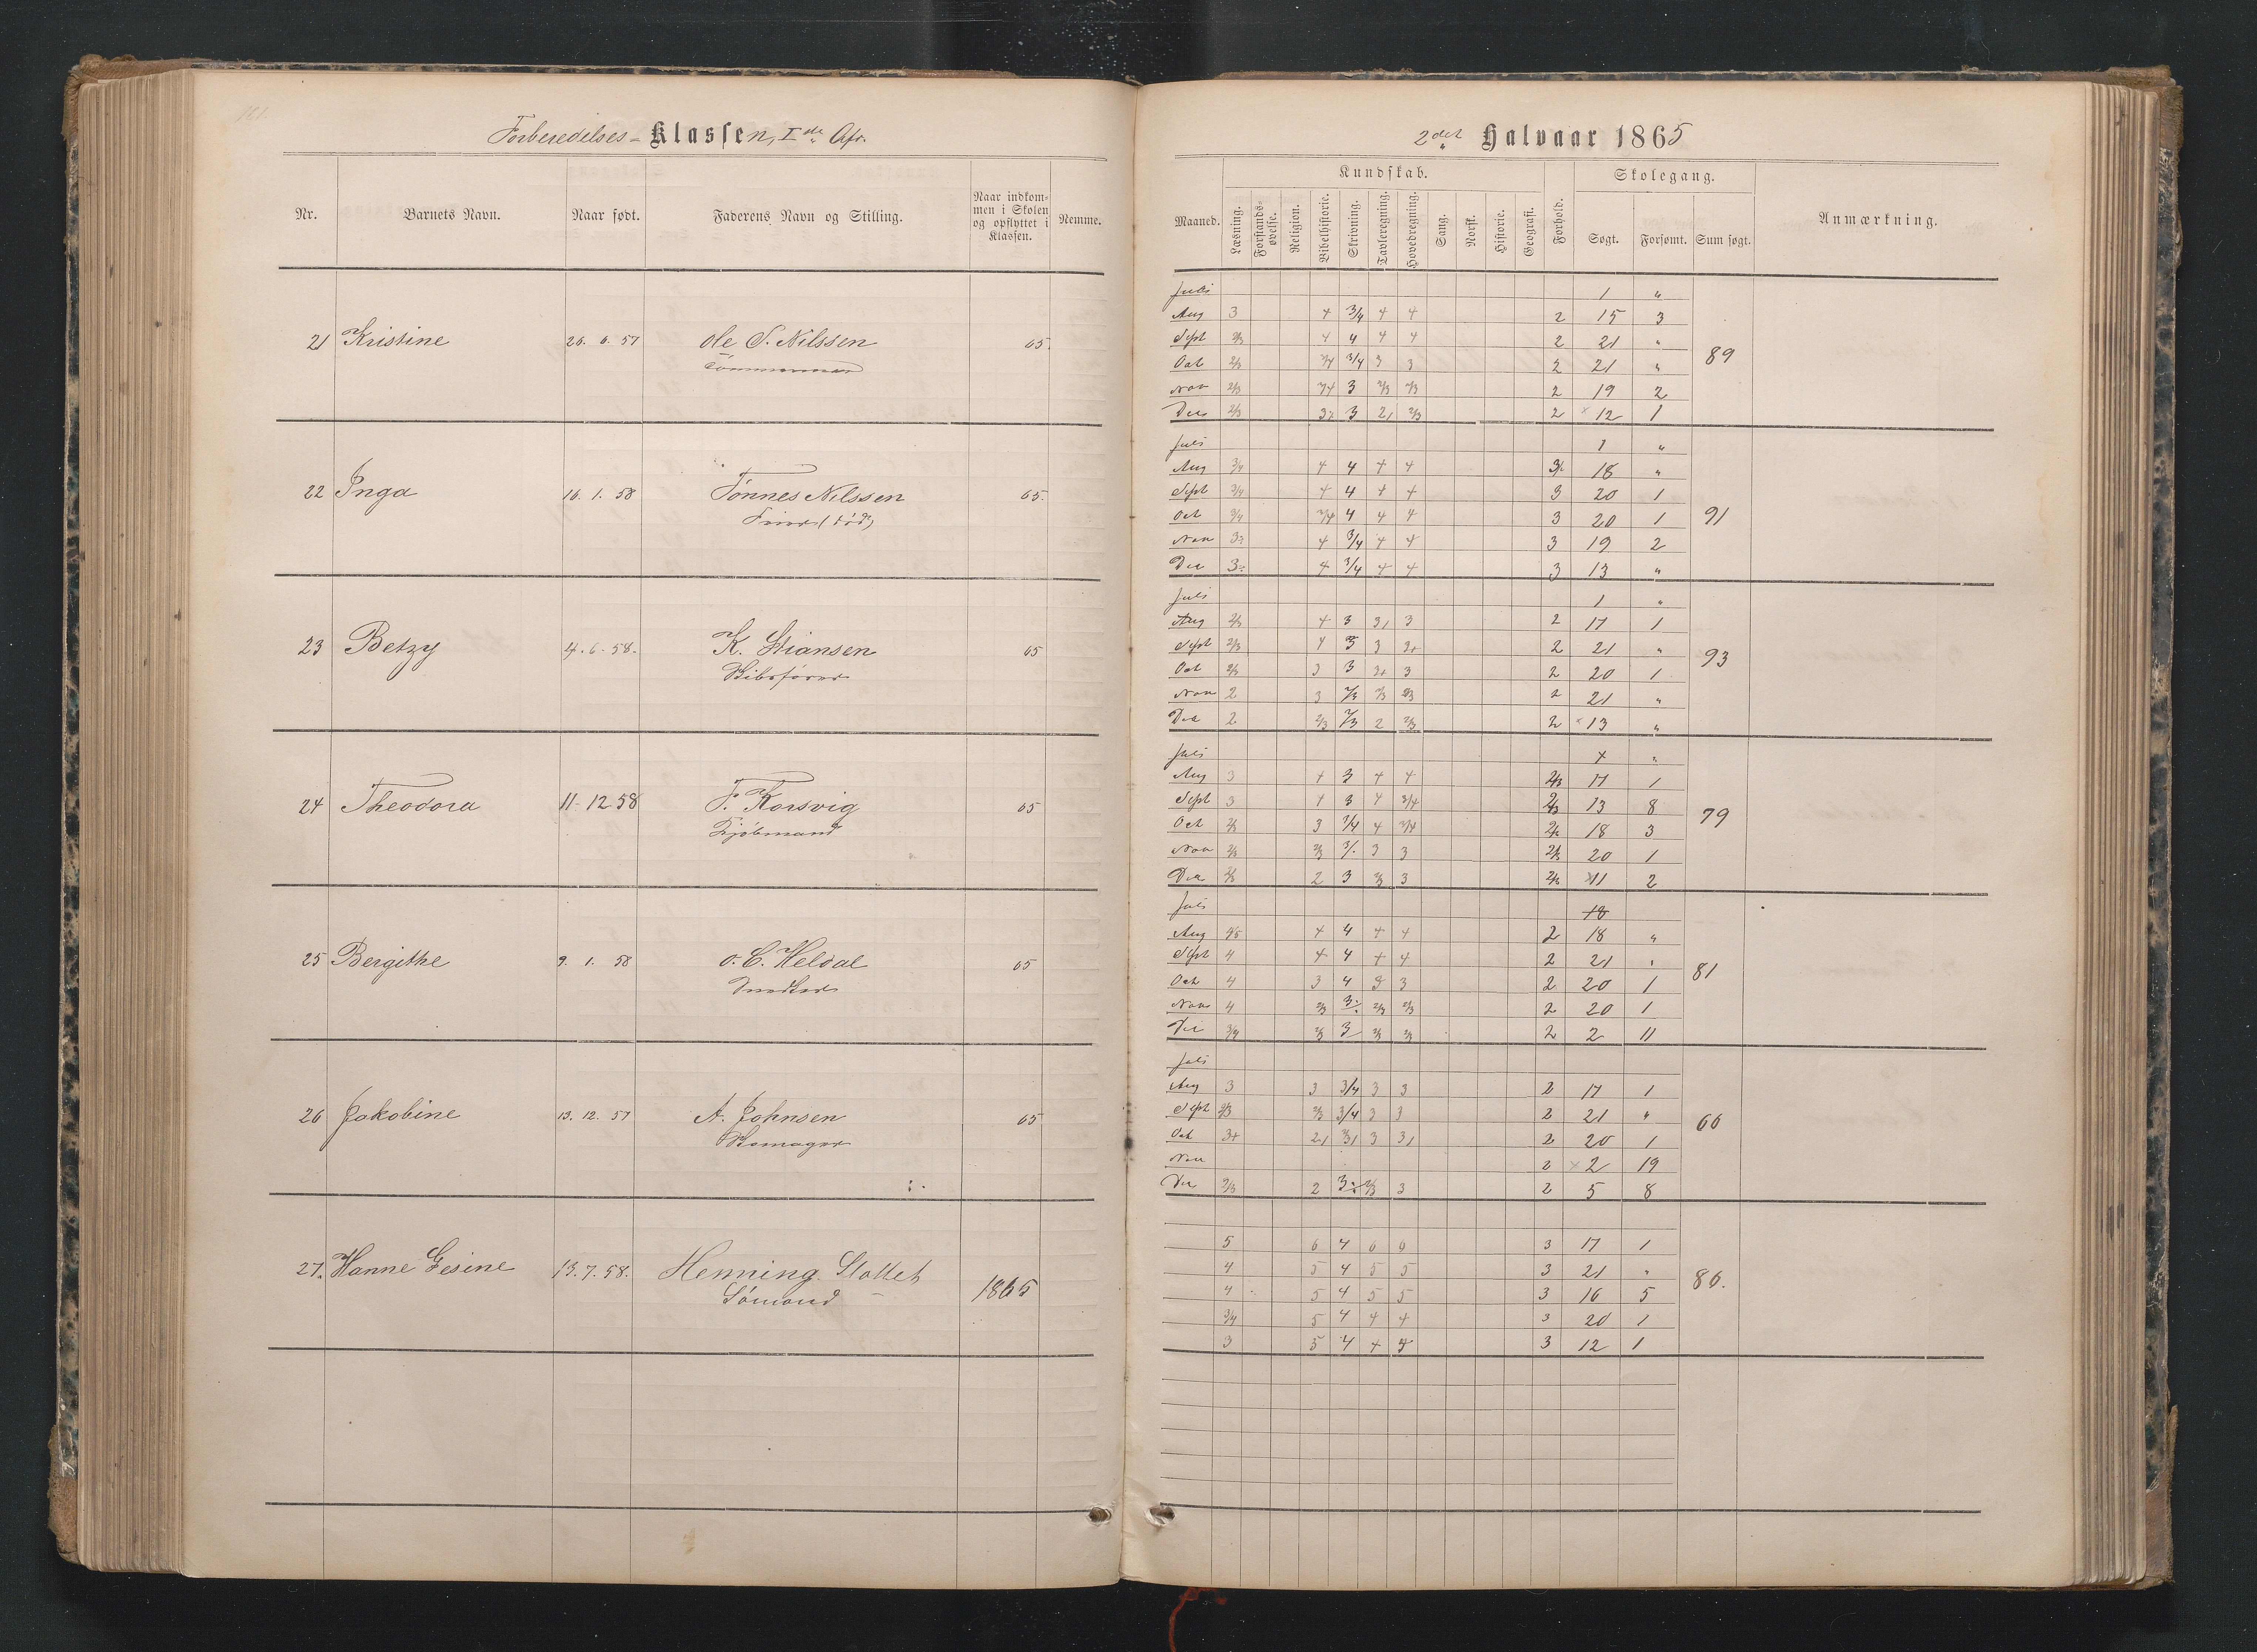 161.
Forberedelses-Klassen, I de Afd.
Nr. Barnets Navn. Naar født. Faderens Navn og Stilling. Naar indkommen i Skolen og opflyttet i Klassen. Nemme.
21 Kristine 26. 6. 57 Ole S. Nilssen 65.
Tömmermand
22 Inga 16. 1. 58 Tönnes Nilssen 65.
(död)
23 Betzy 4. 6. 58. K. Stiansen 65
24 Theodora 11-12 58 F. Korsvig 65
Kjöbmand
25 Bergithe 9. 1. 58 O. C. Heldal 65
Snedker
26 Jakobine 13. 12. 57 A. Johnsen 65
27. Hanne Gesine 13. 7. 58. Henning Slottet 1865
Sömand
2det Halvaar 1865
Kundskab. Skolegang.
Maaned. Læsning. Forstands-øvelse. Religion. Bibelhistorie. Skrivning. Tavleregning. Hovedregning. Sang. Norsk. Historie. Geografi. Forhold. Søgt. Forsømt. Sum søgt. Anmærkning.
Juli 1 "
Aug 3 4 3/4 4 4 2 15 3
Sept 2/3 4 4 4 4 2 21 "
Oct 2/3 3/4 3/4 3 3 2 21 " 89
Nov 2/3 3/4 3 2/3 2/3 2 19 2
Dec 2/3 3 3 2 2/3 2 12 1
Juli 1 "
Aug 3/4 4 4 4 4 18 "
Sept 3/4 4 4 4 4 3 20 1
Oct 3/4 3/4 4 4 4 3 20 1 91
Nov 3 4 3/4 4 4 3 19 2
Dec 3 4 3/4 4 4 3 13 "
Juli 1 "
Aug 2/3 4 3 3 3 2 17 1
Sept 2/3 4 3 3 3+ 2 21 "
Oct 2/3 3 3 3+ 3 2 20 1 93
Nov 2 3 2/3 2/3 2/3 2 21 "
Dec 2 2/3 2/3 2 2/3 2 13 "
Juli 4 "
Aug 3 4 3 4 4 2/3 17 1
Sept 3 4 3 4 3/4 2/3 13 8
Oct 2/3 3 3/4 4 3/4 2/3 18 3 79
Nov 2/3 2/3 3 3 3 2/3 20 1
Dec 2/3 2 3 2/3 3 2/3 11 2
Juli 18
Aug 4/5 4 4 4 4 2 18 "
Sept 4 4 4 4 4 2 21 "
Oct 4 3 4 3 3 2 20 1 81
Nov 4 2/3 3 2/3 2/3 2 20 1
Dec 3/4 2/3 3 2/3 2/3 2 2 11
Juli
Aug 3 3 3/4 3 3 2 17 1
Sept 2/3 2/3 3/4 3 3 2 21 "
Oct 3+ 2 3 3 3 2 20 1 66
Nov 2 2 19
Dec 2/3 2 3 2/3 3 2 5 8
5 6 4 6 6 3 17 1
4 5 4 5 5 3 21 "
4 5 4 5 5 3 16 5 86.
3/4 5 4 4 4 3 20 1
3 5 4 4 5 3 12 1